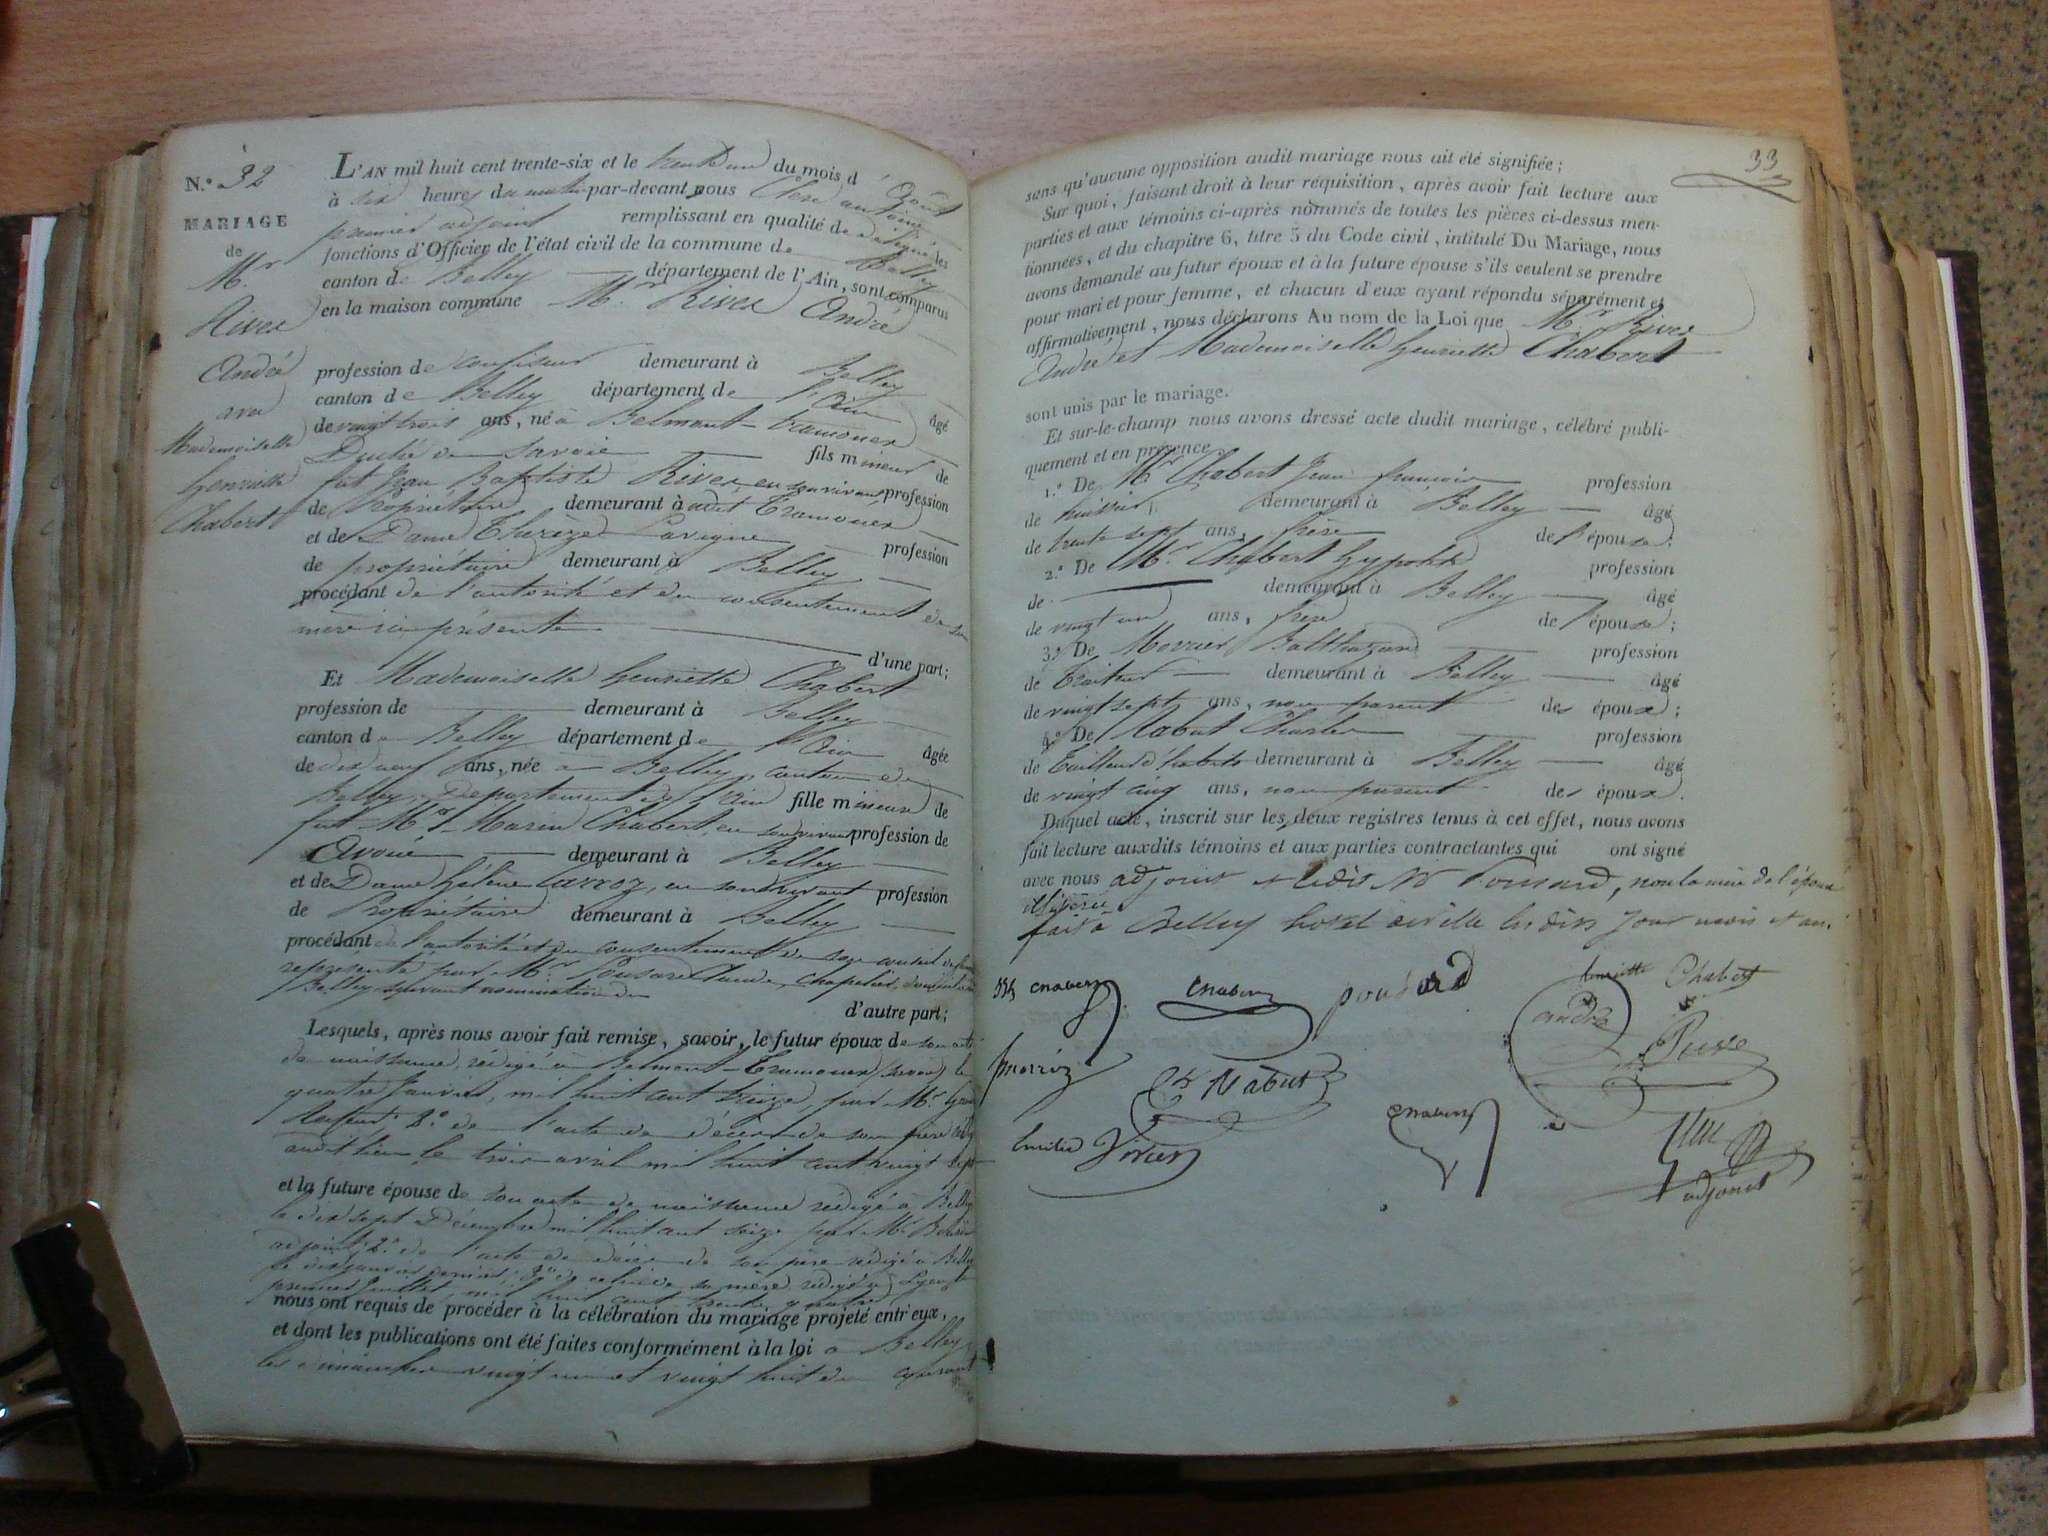 N.º 32
MARIAGE
de
M.r
Rives
André
avec
Mademoiselle
henriette
Chabert
L'AN mil huit cent trente-six et le trente un du mois d'Août
à six heures du matin par-devant nous
premier adjoint remplissant en qualité de délégué les
fonctions d'Officier de l'état civil de la commune de Belley
canton de Belley département de l'Ain, sont comparus
en la maison commune M.r Rives André
profession de confiseur demeurant à Belley
canton de Belley département de l'Ain âgé
de vingt trois ans, né à Belmont-tramonex
Duché de Savoie fils mineur de
fut Jean Baptiste Rives, en son vivant profession
de Propriétaire demeurant à audit Tramonex
et de Dame Thérèze Lavigne profession
de propriétaire demeurant à Belley
procédant de l'autorité et du consentement de sa
mère ici présente.
d'une part;
Et Mademoiselle henriette Chabert
profession de demeurant à Belley
canton de Belley département de l'Ain âgée
de dix neuf ans, née à Belley, canton de
Belley, département de l'Ain fille mineure de
fut M.r Marin Chabert, en son vivant profession de
Avoué demeurant à Belley
et de Dame hélène Carroz, en son vivant profession
de Propriétaire demeurant à Belley
procédant de l'autorité et du consentement de son conseil de famille
représenté par M.r Pousard Claude, chapelier, domicilié à
Belley suivant nomination du
d'autre part;
Lesquels, après nous avoir fait remise, savoir, le futur époux de son acte
de naissance, rédigé à Belmont-Tramonex (Savoie) le
quatre Janvier, mil huit cent treize, par M.r
Recteur, 2.º de l'acte de décès de son père
audit lieu le trois avril mil huit cent vingt sept
et la future épouse de son acte de naissance rédigé à Belley
le dix sept Décembre mil huit cent seize par M.r
adjoint, 2.º de l'acte de décès de son père rédigé à Belley
le dix janvier dernier; 3.º de celui de sa mère rédigé à Lyon le
premier Juillet, mil huit cent trente quatre
nous ont requis de procéder à la célébration du mariage projeté entr'eux,
et dont les publications ont été faites conformément à la loi à Belley
les dimanches vingt un et vingt huit du courant
33
sans qu'aucune opposition audit mariage nous ait été signifiée;
Sur quoi, faisant droit à leur réquisition, après avoir fait lecture aux
parties et aux témoins ci-après nommés de toutes les pièces ci-dessus men-
tionnées, et du chapitre 6, titre 5 du Code civil, intitulé Du Mariage, nous
avons demandé au futur époux et à la future épouse s'ils veulent se prendre
pour mari et pour femme, et chacun d'eux ayant répondu séparément et
affirmativement, nous déclarons Au nom de la Loi que M.r Rives
André et Mademoiselle henriette Chabert
sont unis par le mariage.
Et sur-le-champ nous avons dressé acte dudit mariage, célébré publi-
quement et en présence
1.º De M.r Chabert Jean françois profession
de huissier demeurant à Belley âgé
de trente sept ans, frère de l'épouse;
2.º De M.r Chabert hypolite profession
de demeurant à Belley âgé
de vingt un ans, frère de l'épouse;
3.º De Morrier Balthazard profession
de Traiteur demeurant à Belley âgé
de vingt sept ans, non parent des époux;
4.º De Nabut Charles profession
de Tailleur d'habits demeurant à Belley âgé
de vingt cinq ans, non parent des époux.
Duquel acte, inscrit sur les deux registres tenus à cet effet, nous avons
fait lecture auxdits témoins et aux parties contractantes qui ont signé
avec nous adjoint et ledit Mr Pousard, non la mère de l'époux
illitérée
fait à Belley hotel de ville les dits jour mois et an.
Chabert
Chabert
pousard
henriette Chabert
andré
Rive
morriez
Ch Nabut
Emilie
Chabert
adjoint